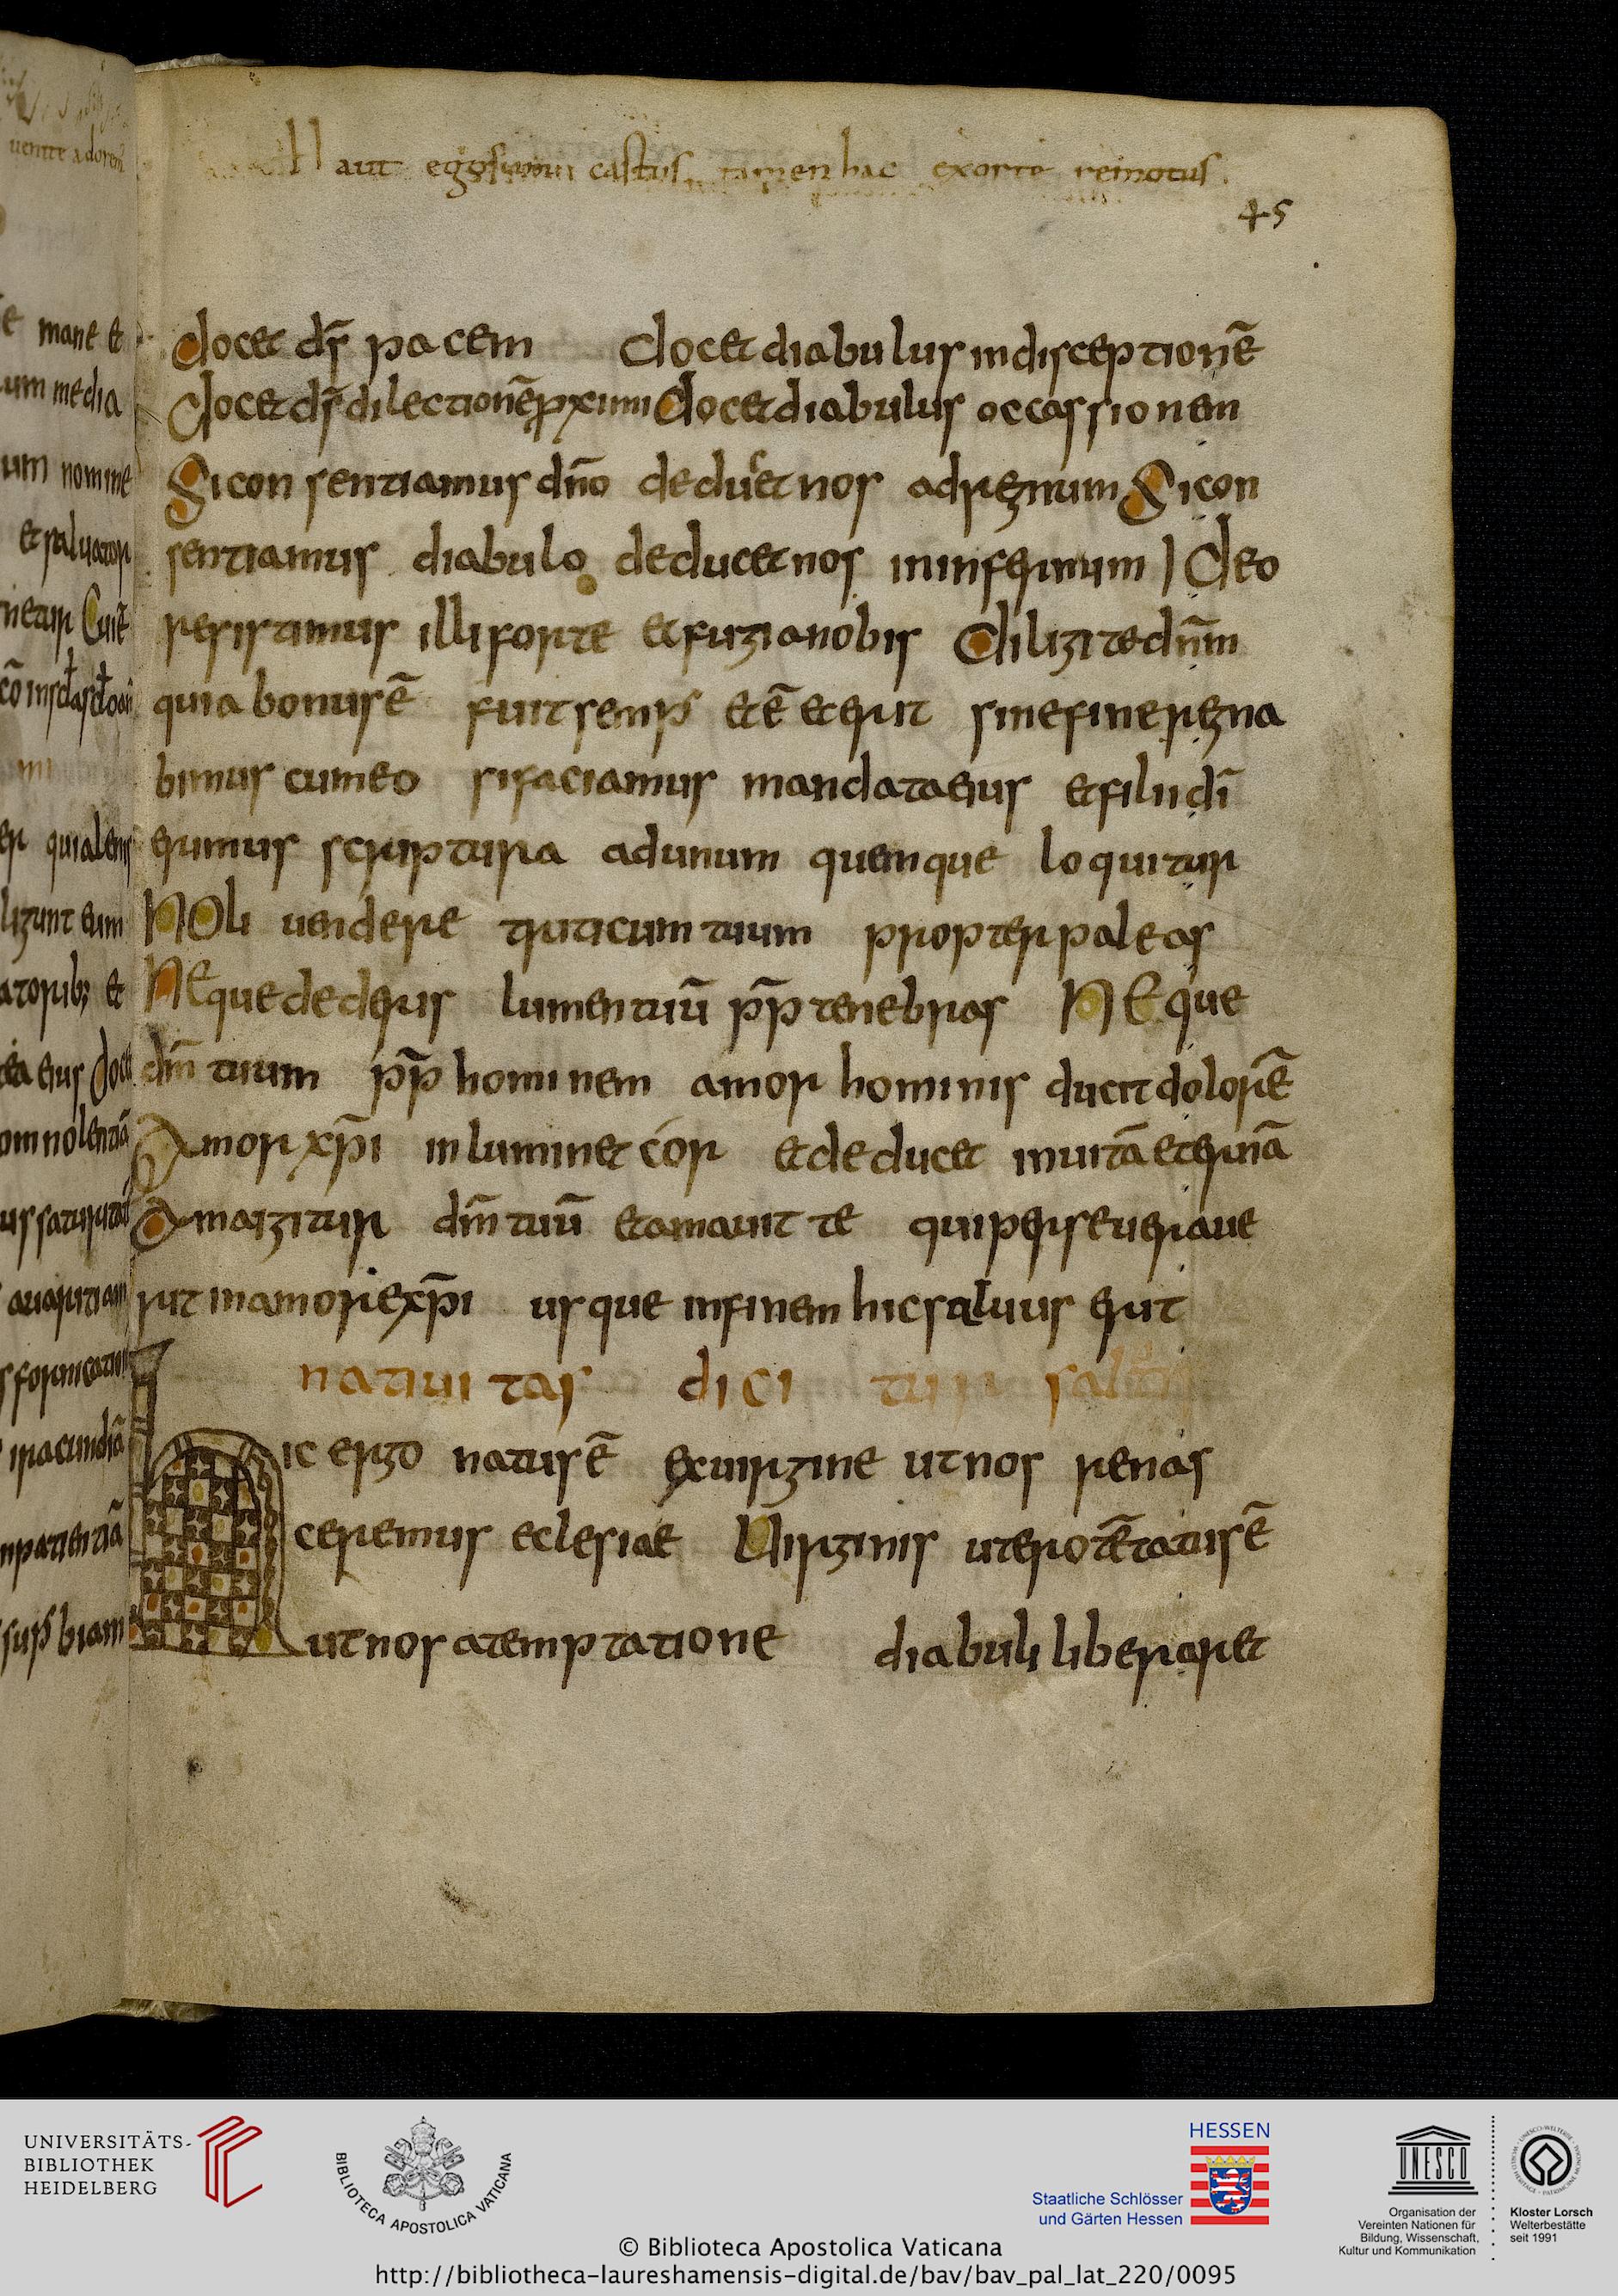 aut eggosum castus tamen hac exorte remotus.
45
docet dſ̄ pacem docet diabulus indisceptionē
docet dſ̄ dilectionē ꝓxum docet diabulus occassionem
Si consentiamus dn̄o deducet nos adregnum Si con
sentiamus diabulo deducet nos ininfernum Ideo
resistimus illi forte et fugianobis diligite dn̄m
quia bonus ē fuit semp̄ et ē et erit sine fine regna
bimus cum eo si faciamus mandata eius et filii di̅
erimus scriptura adunum quemque loquitur
NOli uendere triticum tuum propter paleas
NEque dederis lumen tuū pp̄ tenebras NEque
dm̄ tuum pp̄ hominem amor hominis ducit dolorē
Amor xp̄i inluminet cor et deducet inuitā eternā
Amatzitur dm̄ tuū et amauit te qui perseueraue
rit inamore xp̄i usque infinem hic saluus erit
natiuitas dicitur
hic ergo natus ē exuirgine ut nos renas
ceremus eclesiae Uirginis utero tētatus ē
ut nos atemptatione diabuli liberaret
e mane et
um media
um nomine
et saluator
quia lenis
ligunt eum
atorib; et
ea eius doce
omnolentiā
auaritiam
fornicatio
iracundiā
npatientiā
sup̄biam
UNIVERSITÄTS-
BIBLIOTHEK
HEIDELBERG
BIBLIOTECA APOSTOLICA VATICANA
HESSEN
Staatliche Schlösser
und Gärten Hessen
UNESCO
Organisation der
Vereinten Nationen für
Bildung, Wissenschaft,
Kultur und Kommunikation
Kloster Lorsch
Welterbestätte
seit 1991
© Biblioteca Apostolica Vaticana
http://bibliotheca-laureshamensis-digital.de/bav/bav_pal_lat_220/0095